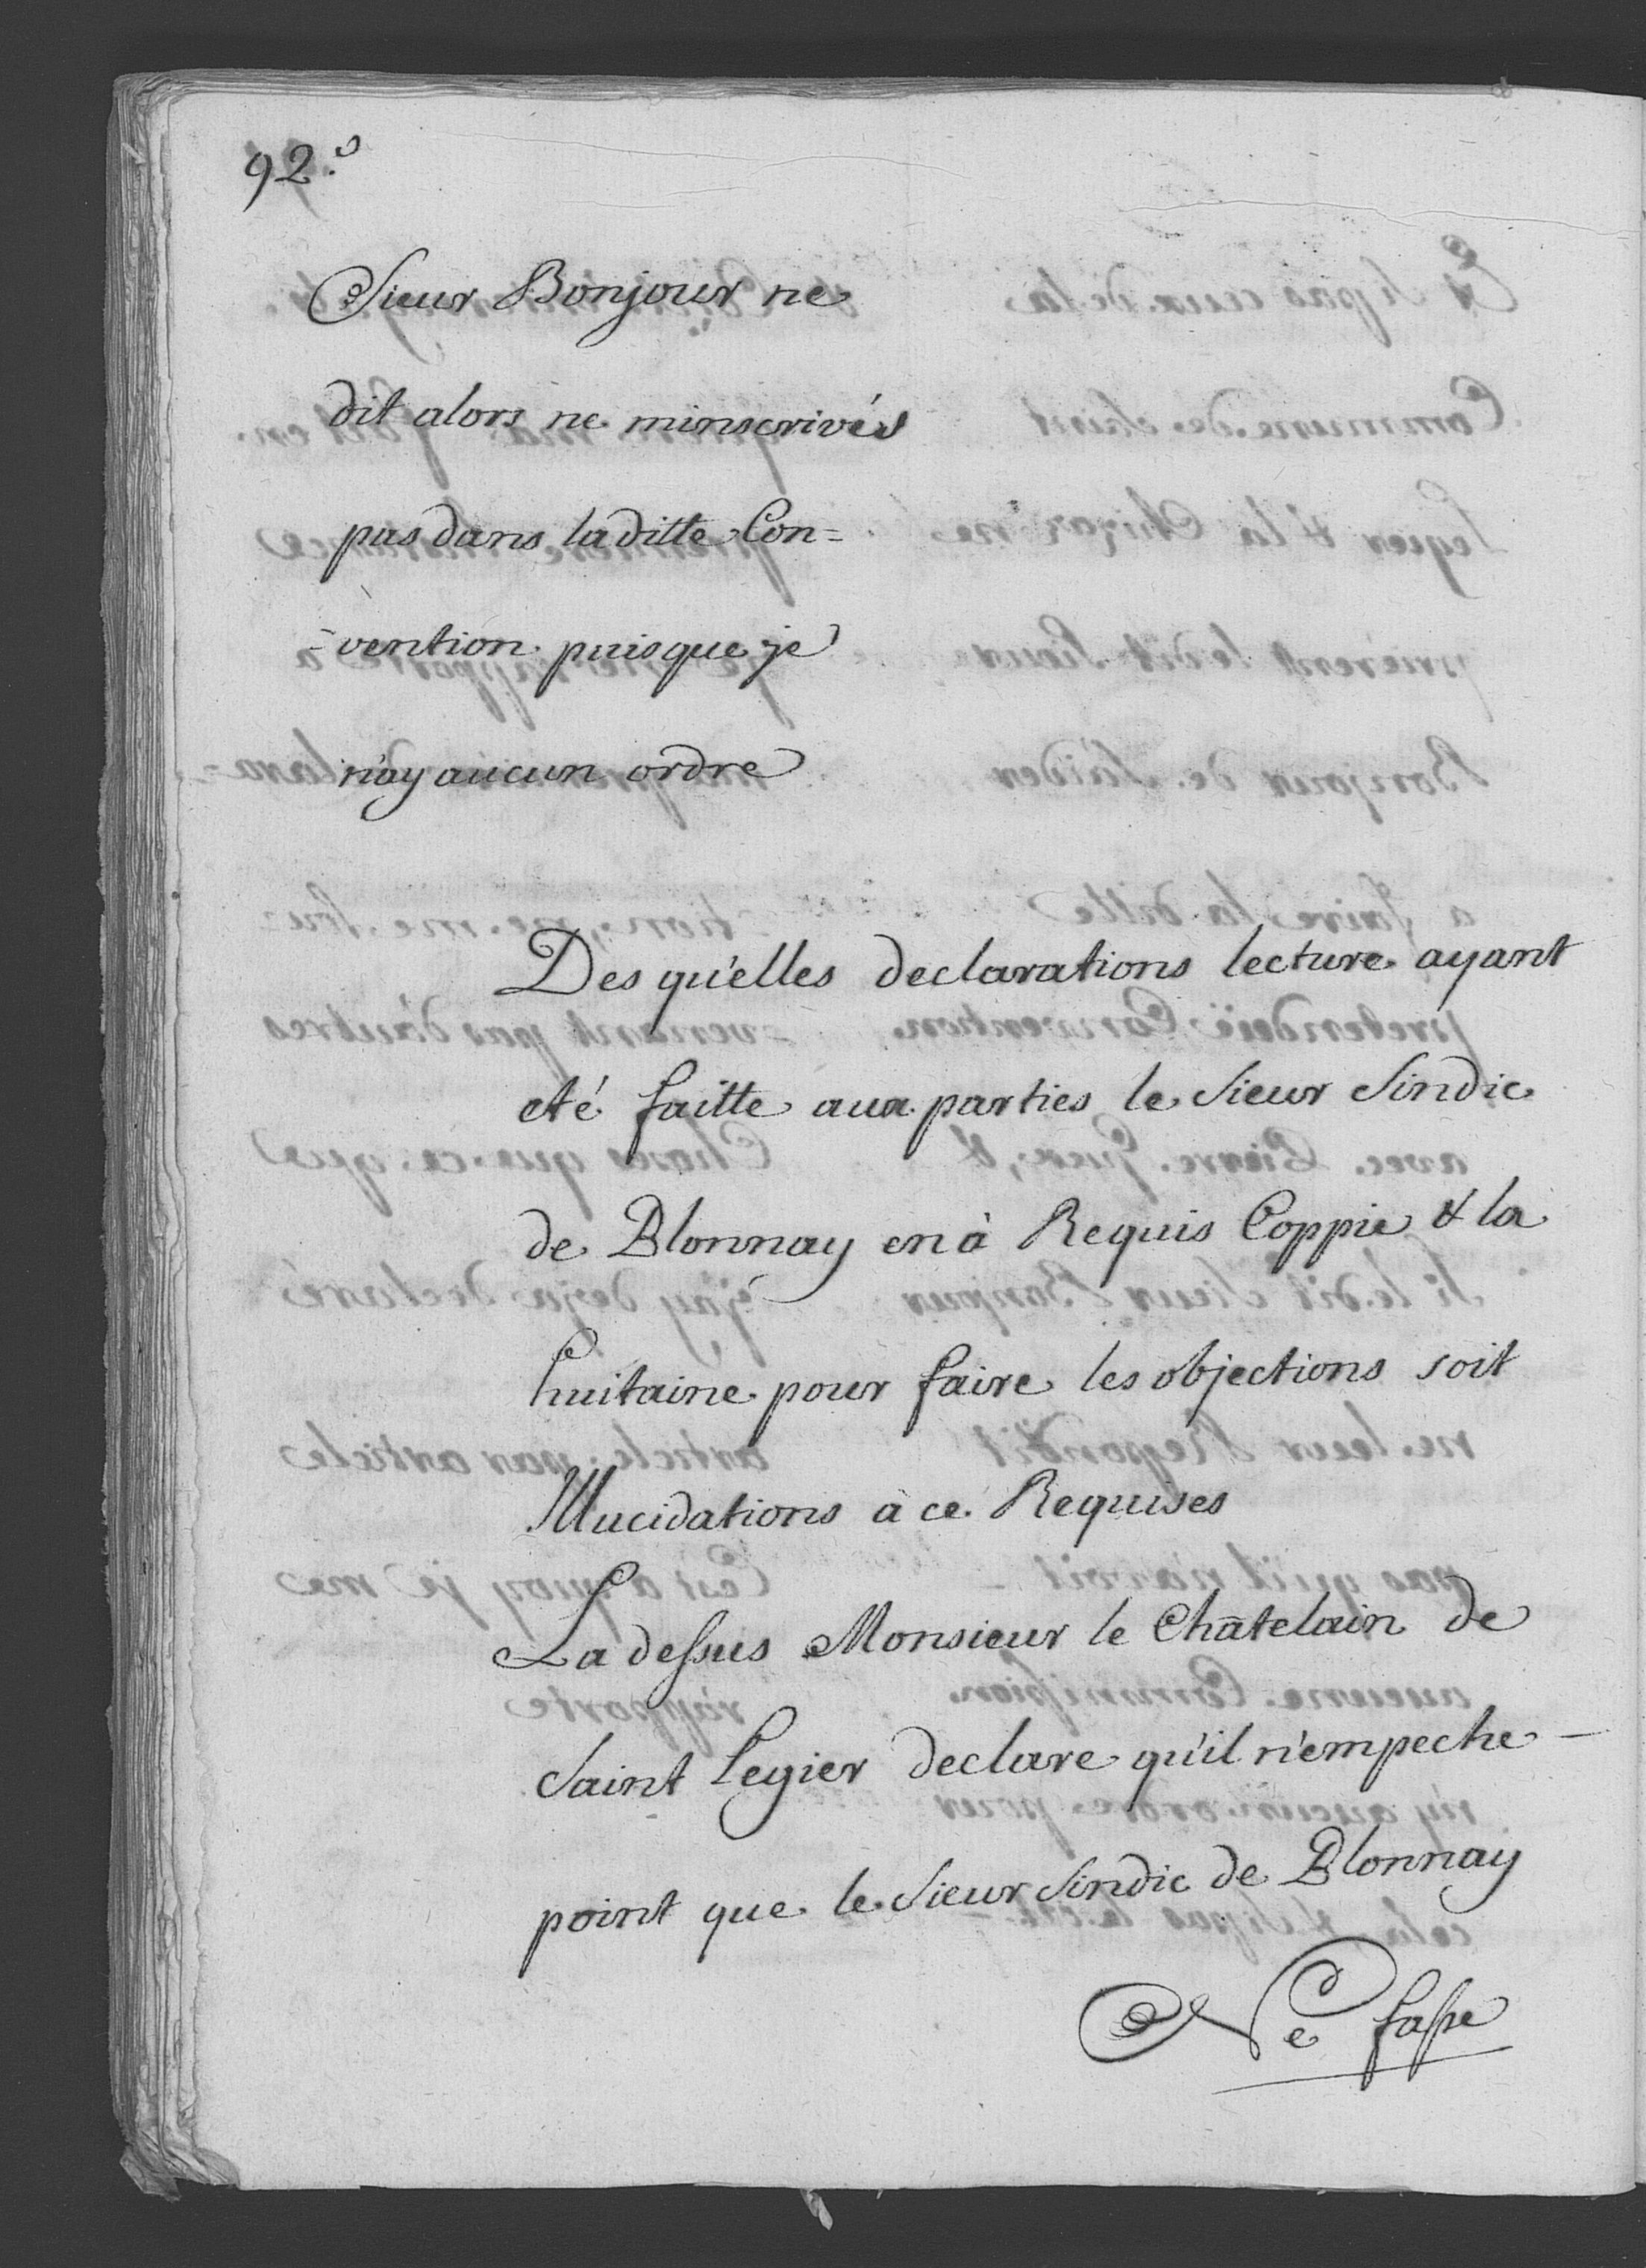 92.
Sieur Bonjour ne
dit alors ne m'inscrivés
pas dans la ditte Con=
=vention puisque je
n'ay aucun ordre
Des qu'elles declarations lecture ayant
eté faitte aux parties le Sieur Sindic
de Blonnay en à Requis Coppie & la
huitaine pour faire les objections soit
Illucidations à ce Requises
La dessus Monsieur le Châtelain de
Saint Legier declare qu'il n'empeche
point que le Sieur Sindic de Blonnay
Ne fasse